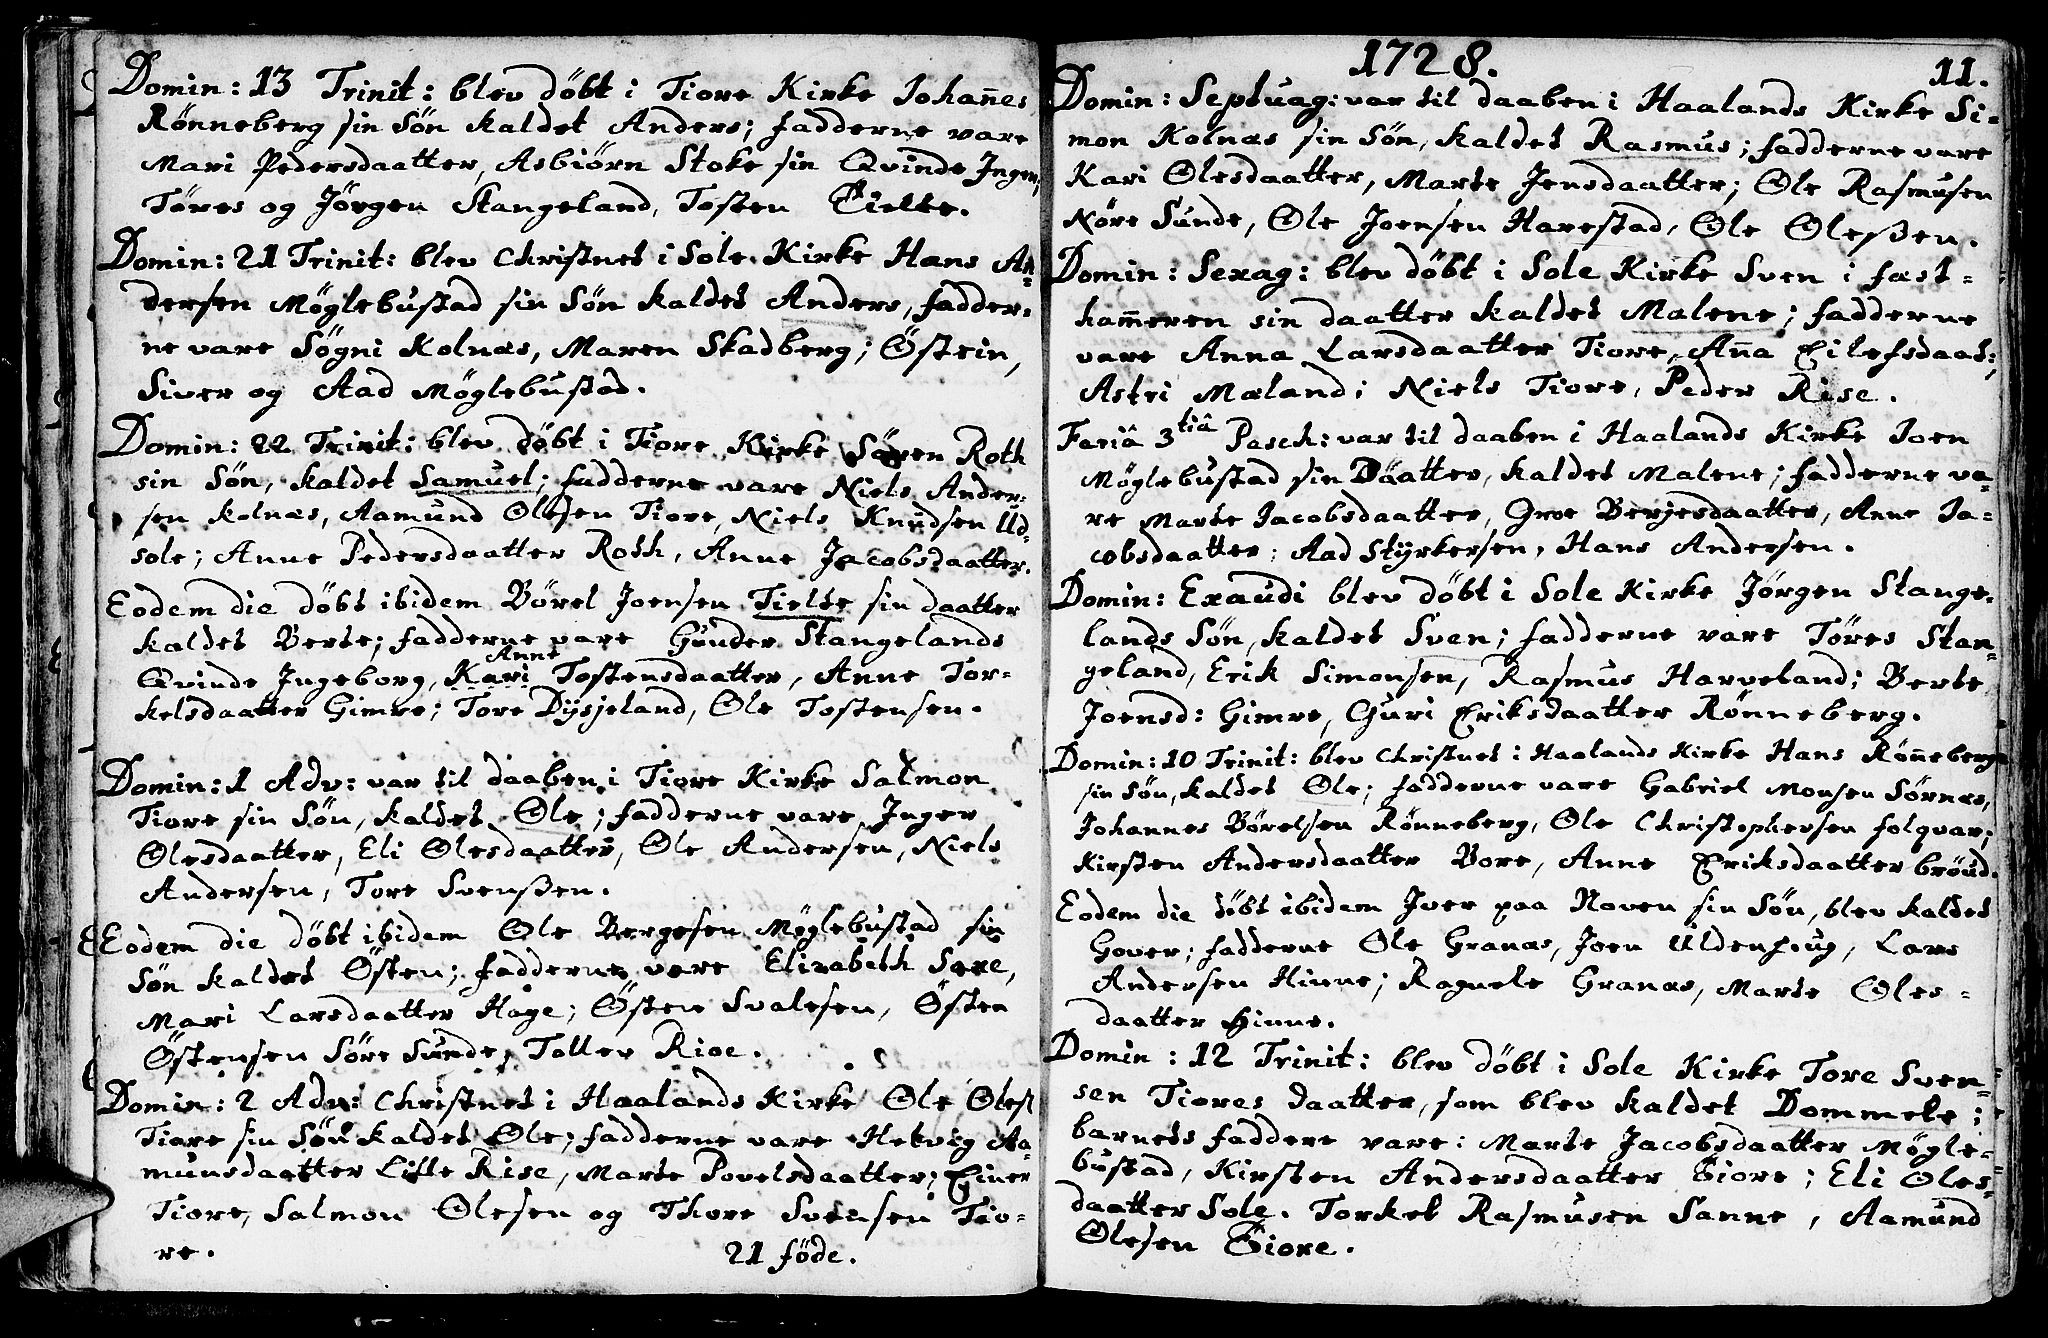 Domin: 13 Trinit: blev döbt i Tiore Kirke Johan̄es
Rönneberg sin Sön kaldet Anders; fadderne vare
Mari Pedersdaatter, Asbiörn Stoke sin Qvinde Inger,
Töres og Jörgen Stangeland, Tosten Tielte.
Domin: 21 Trinit: blev Christnet i Sole Kirke Hans An=
dersen Möglebustad sin Sön kaldet Anders, fadder=
ne vare Sögni Kolnæs, Maren Skadberg; Östein,
Siver og Aad Möglebustad.
Domin: 22 Trinit: blev döbt i Tiore Kirke Sören Roth
sin Sön, kaldet Samuel; fadderne vare Niels Ander=
sen Kolnæs, Aamund Olesen Tiore, Niels Knudsen Ud=
sole; Anne Pedersdaatter Roth, Anne Jacobsdaatter.
Eodem die döbt ibidem Börel Joensen Tielte sin daatter
kaldet Berte; fadderne vare Gunder Stangelands
Anne
Qvinde Ingeborg, Kari Tostensdaatter, Anne Tor=
kelsdaatter Gimre; Tore Dysjeland, Ole Tostensen.
Domin: 1 Adv: var til daaben i Tiore Kirke Salmon
Tiore sin Sön, kaldet Ole; fadderne vare Inger
Olesdaatter, Eli Olesdaatter, Ole Andersen, Niels
Andersen, Tore Svenßen.
Eodem die döbt ibidem Ole Bergesen Möglebustad sin
Sön kaldet Östen; fadderne vare Elizabeth
Mari Larsdaatter Hage; Östen Svalesen, Östen
Östensen Söre Sunde, Tollev
Domin: 2 Adv: Christnet i Haalands Kirke Ole Oles
Tiore sin Sön kaldet Ole; fadderne vare Hekvig Aa=
munsdaatter Lille Rise, Marte Povelsdaatter; Einer
Tiore, Salmon Olesen og Thore Svensen Tio=
re.
21 föde.
1728.
11.
Domin: Septuag: var til daaben i Haalands Kirke Si=
mon Kolnæs sin Sön, kaldet Rasmus; fadderne vare
Kari Olesdaatter, Marte Jensdaatter; Ole Rasmusen
Nöre Sunde, Ole Joensen Harestad, Ole Oleßen.
Domin: Sexag: blev döbt i Sole Kirke Sven i fast=
ham̄eren sin daatter kaldet Malene; fadderne
vare Anna Larsdaatter Tiore, An̄a Eilefsdaat:,
Astri Mæland; Niels Tiore, Peder Rise.
Feriâ 3tiâ Pasch: var til daaben i Haalands Kirke Joen
Möglebustad sin Daatter, kaldet Malene; fadderne va=
re Marte Jacobsdaatter, Groe Berjesdaatter, Anne Ja=
cobsdaatter; Aad Styrkersen, Hans Andersen.
Domin: Exaudi blev döbt i Sole Kirke Jörgen Stange=
lands Sön, kaldet Sven; fadderne vare Töres Stan=
geland, Erik Simonsen, Rasmus Harveland; Berte
Joensd: Gimre, Guri Eriksdaatter Rönneberg.
Domin: 10 Trinit: blev Christnet i Haalands Kirke Hans Rön̄eberg
sin Sön, kaldet Ole; fadderne vare Gabriel Monsen Sörnæs,
Johannes Börelsen Rönneberg, Ole Christophersen folqvar;
Kirsten Andersdaatter Bore, Anne Eriksdaatter bröud.
Eodem die döbt ibidem Iver paa Noven sin Sön, blev kaldet
Gover; fadderne Ole Granæs, Joen Uldenhaug, Lars
Andersen Hinne; Ragnele Granæs, Marte Oles=
daatter Hinne.
Domin: 12 Trinit: blev döbt i Sole Kirke Tore Sven=
sen Tiores daatter, som blev kaldet Dommete;
barnets faddere vare: Marte Jacobsdaatter Mögle=
bustad, Kirsten Andersdaatter Tiore; Eli Oles=
daatter Sole. Torkel Rasmusen Sanne, Aamund
Olesen Tiore.